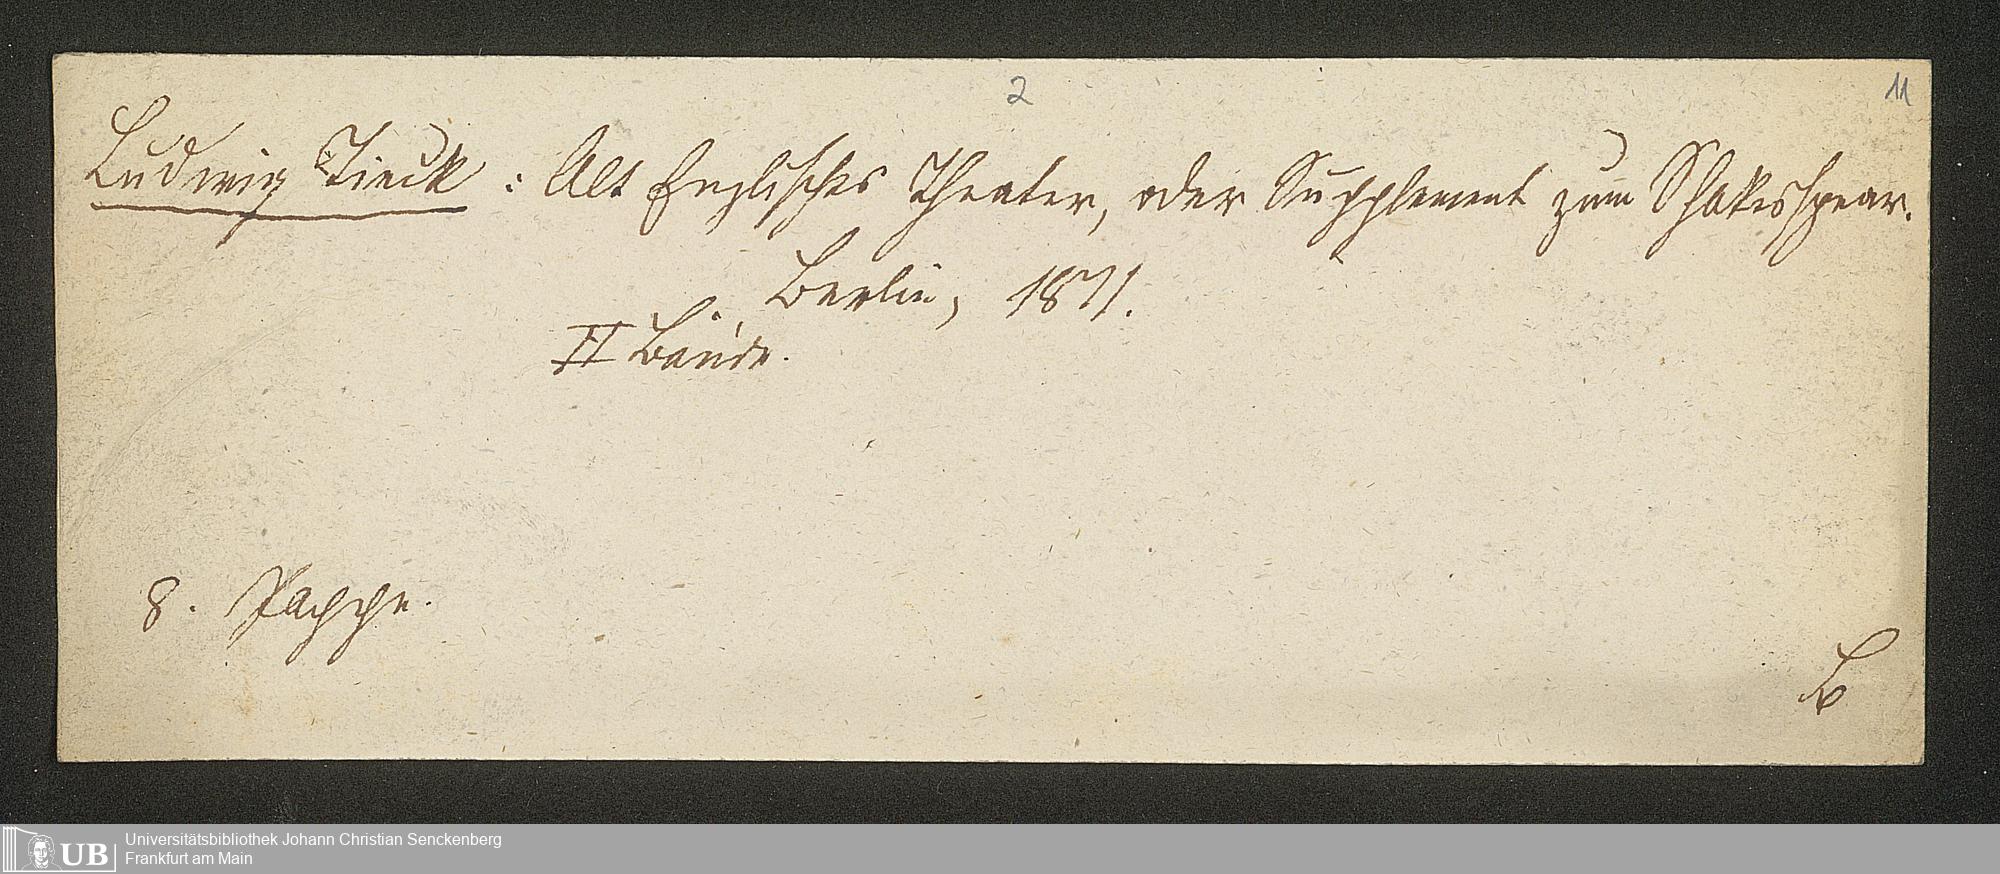 2
11
Ludwig Tieck : Alt Englisches Theater, oder Supplement zum Shakesspear.
Berlin, 1811.
II Bände.
8. Pappe.
B
UB
Universitätsbibliothek Johann Christian Senckenberg
Frankfurt am Main